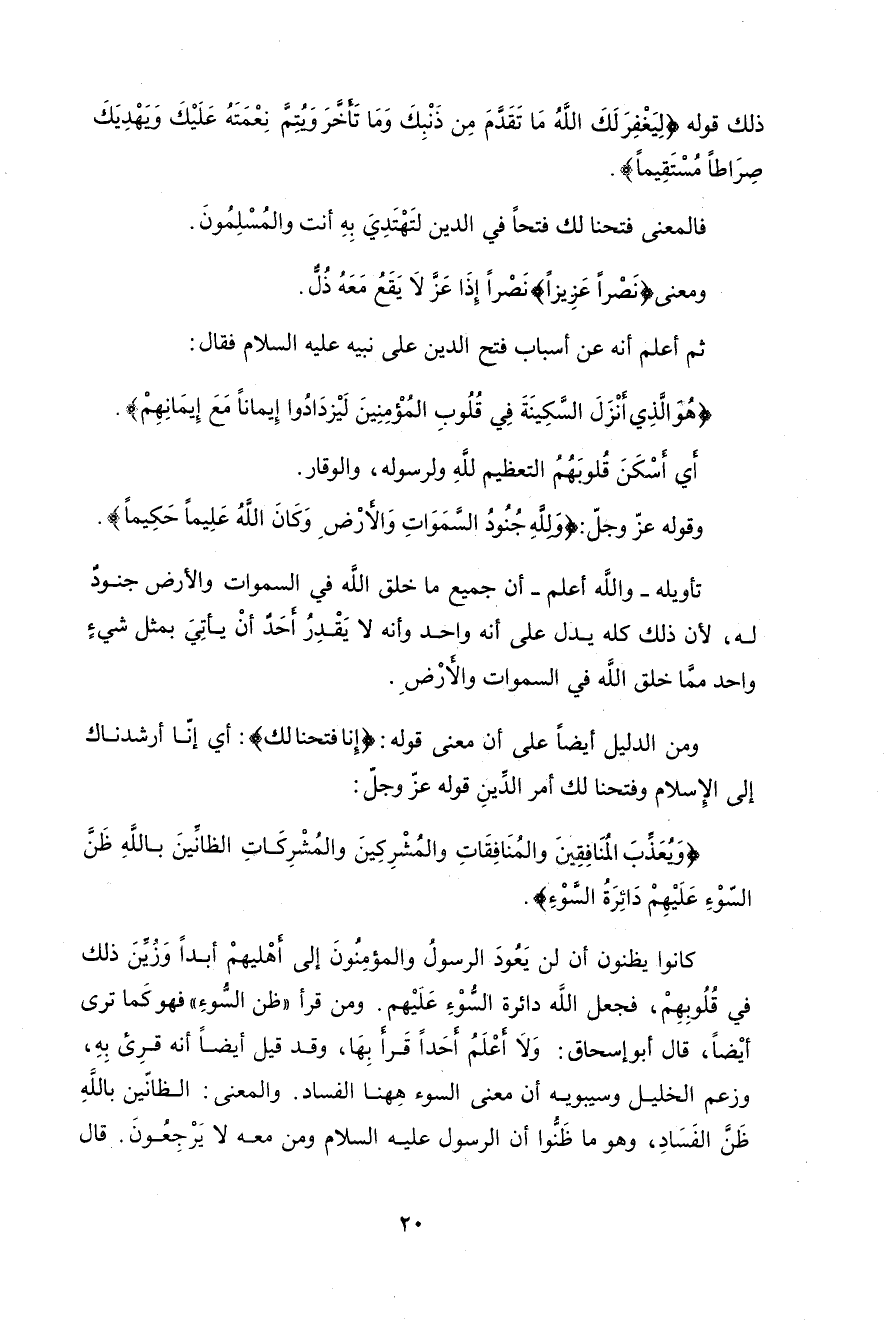 ذلك قوله ﴿لِيَغْفِرَ لَكَ اللَّهُ مَا تَقَدَّمَ مِن ذَنْبِكَ وَمَا تَأَخَّرَ وَيُتِمَّ نِعْمَتَهُ عَلَيْكَ وَيَهْدِيَكَ
صِرَاطاً مُسْتَقِيماً﴾.
فالمعنى فتحنا لك فتحاً في الدين لتَهْتَدِيَ بِهِ أنت والمُسْلِمُونَ.
ومعنى ﴿نَصْراً عَزِيزاً﴾ نَصْراً إِذَا عَزَّ لَا يَقَعُ مَعَهُ ذُلٌّ.
ثم أعلم أنه عن أسباب فتح الدين على نبيه عليه السلام فقال:
﴿هُوَ الَّذِي أَنْزَلَ السَّكِينَةَ فِي قُلُوبِ المُؤْمِنِينَ لَيْزدَادُوا إِيماناً مَعَ إِيمَانِهِمْ﴾.
أَي أَسْكَنَ قُلوبَهُمُ التعظيم للَّهِ ولرسوله، والوقار.
وقوله عزّ وجلّ: ﴿وَلِلَّهِ جُنُودُ السَّمَوَاتِ وَالْأَرْضِ وَكَانَ اللَّهُ عَلِيماً حَكِيماً﴾.
تأويله ـ واللَّه أعلم ـ أن جميع ما خلق اللَّه في السموات والأرض جنودٌ
له، لأن ذلك كله يدل على أنه واحد وأنه لا يَقْدِرُ أَحَدٌ أنْ يأتِيَ بمثل شيءٍ
واحد ممَّا خلق اللَّه في السموات والأَرْضِ.
ومن الدليل أيضاً على أن معنى قوله: ﴿إنا فتحنا لك﴾: أي إنّا أرشدناك
إلى الإسلام وفتحنا لك أمر الدِّينِ قوله عزّ وجلّ:
﴿وَيُعَذِّبَ المُنَافِقِينَ والمُنَافِقَاتِ والمُشْرِكِينَ والمُشْرِكَاتِ الظانِّينَ باللَّهِ ظَنَّ
السّوْءِ عَلَيْهِمْ دَائِرَةُ السَّوْءِ﴾.
كانوا يظنون أن لن يَعُودَ الرسولُ والمؤمِنُونَ إلى أَهْليهمْ أبداً وَزُيِّنَ ذلك
في قُلُوبِهِمْ، فجعل اللَّه دائرة السُّوْءِ عَلَيْهم. ومن قرأ «ظن السُّوءِ» فهو كَما ترى
أيْضاً، قال أبو إسحاق: وَلَا أَعْلَمُ أَحَداً قَرأ بِهَا، وقد قيل أيضاً أنه قرِئ بِهِ،
وزعم الخليل وسيبويه أن معنى السوء ههنا الفساد. والمعنى: الظانّين باللَّهِ
ظَنَّ الفَسَادِ، وهو ما ظَنُّوا أن الرسول عليه السلام ومن معه لا يَرْجِعُونَ. قال
٢٠